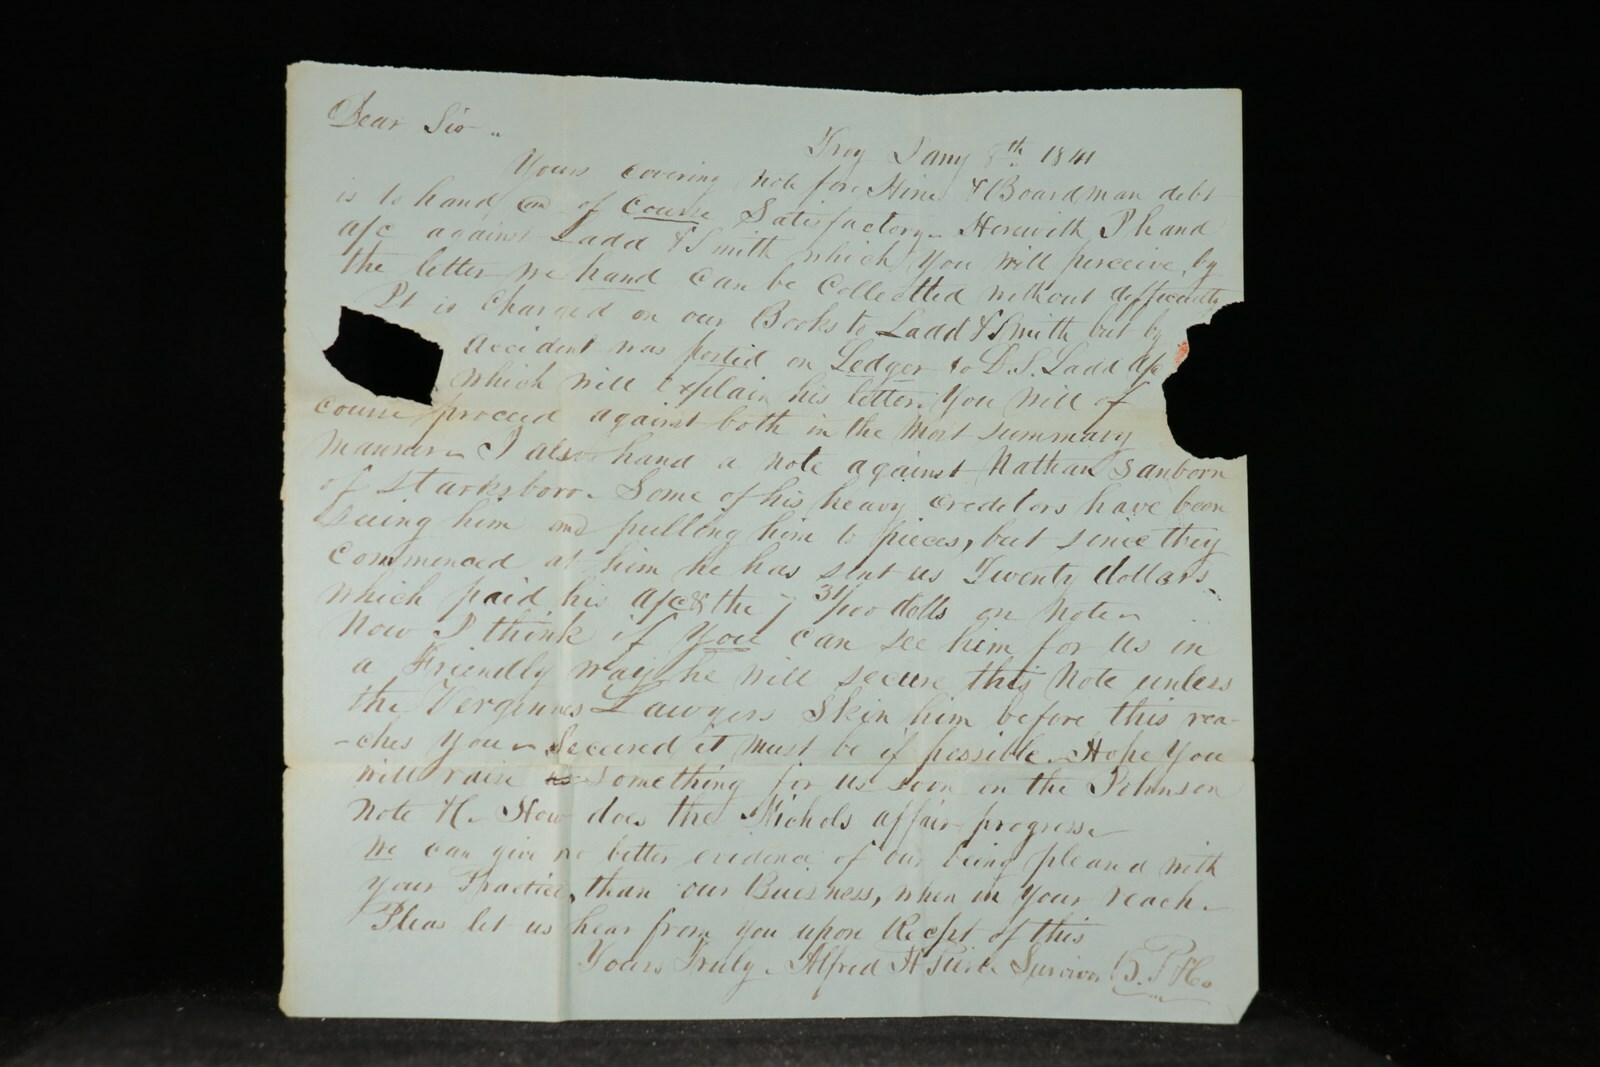 Dear Sir
Troy Jany 8th 1841
Yours covering note for Hine & Boardman debt
is to hand and of course Satisfactory. Herewith I hand
a/c against Ladd & Smith which You will perceive by
the letter we hand can be Collectted without difficulty
It is Charged on our Books to Ladd & Smith but by
accident was posted on Ledger to D. S. Ladd a/c
which will Explain his letter. You will of
course proceed against both in the Most summary
manner. I also hand a note against Nathan Sanborn
of Starksboro. Some of his heavy creditors have been
Suing him and pulling him to pieces, but since they
Commenced at him he has sent us Twenty dollars
which paid his a/c & the 7 31/100 dolls on Note.
Now I think if You can see him for Us in
a Friendly way he will secure this Note unless
the Vergennes Lawyers Skin him before this rea-
-ches You. Secured it Must be if possible. Hope You
will raise something for us soon on the Johnson
Note &c. How does the Nichols affair progress.
We can give no better evidence of our being pleased with
your Practice, than our Buisness, when in Your reach.
Pleas let us hear from you upon Recept of this
Yours Truly. Alfred H Survivor